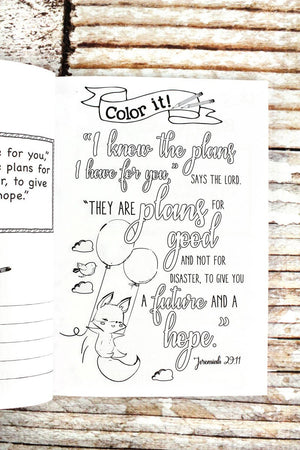 e for you,"
s plans for
r, to give
hope."
Color it!
"I know the plans
I have for you"
SAYS THE LORD.
"THEY ARE plans FOR
good
AND NOT FOR
DISASTER, TO GIVE YOU
A future AND A
hope."
~Jeremiah 29:11